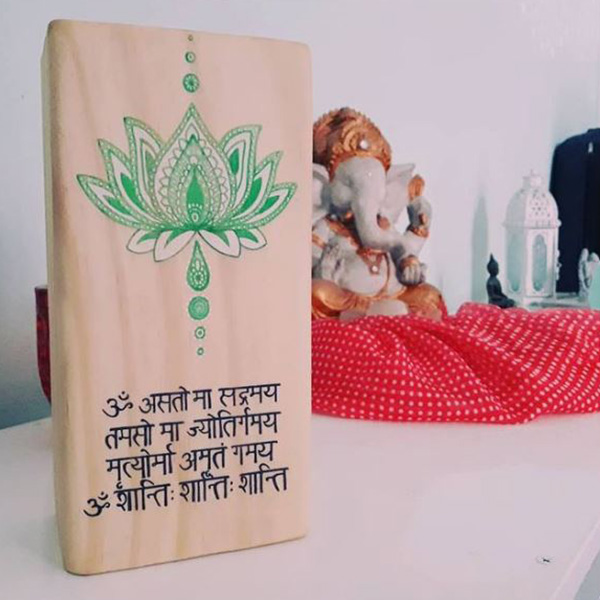 ॐ असतो मा सद्गमय
तमसो मा ज्योतिर्गमय
मृत्योर्मा अमृतं गमय
ॐ शान्तिः शान्तिः शान्ति